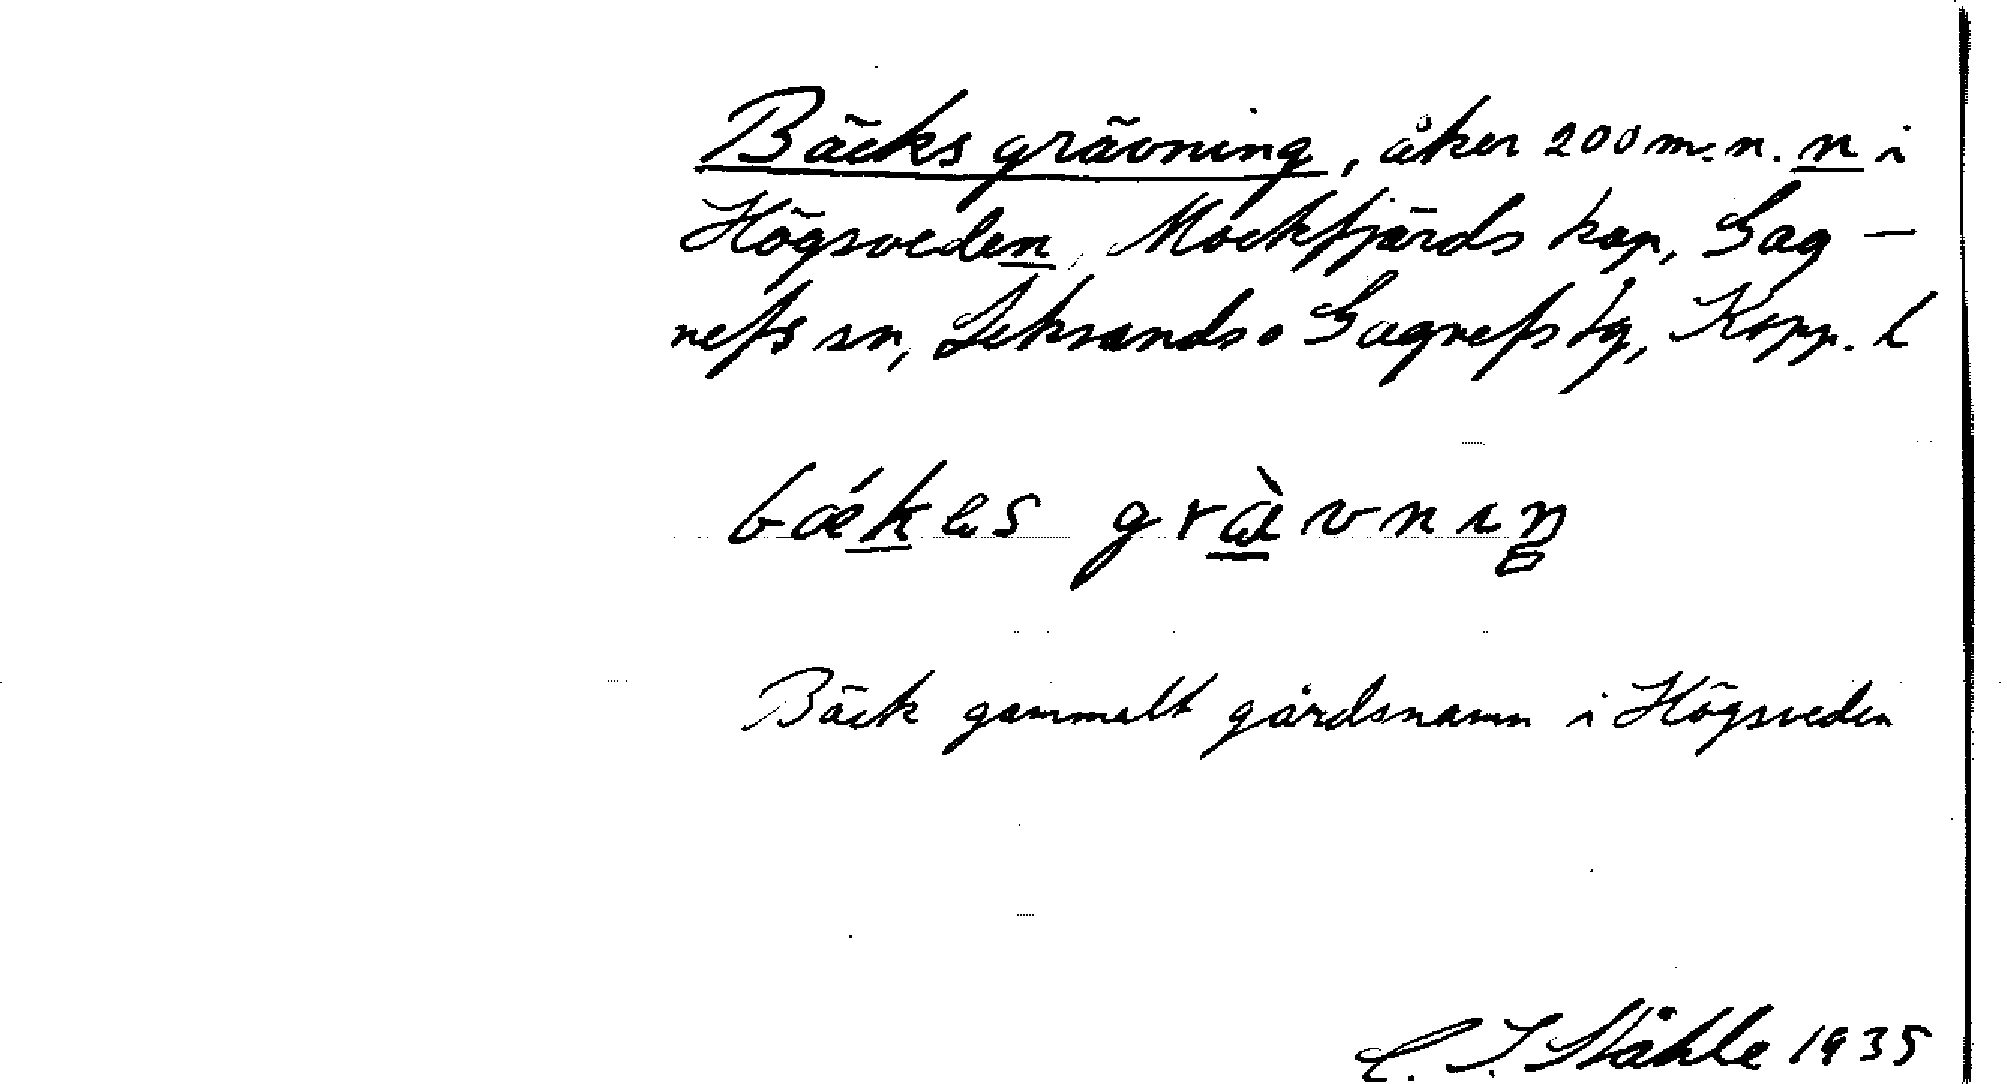 Bäcks grävning, åker 200 m. n. n i
Högsveden, Mockfjärds kap, Gag-
nefs sn, Leksands o Gagnefs tg, Kopp. l
bǽkes græ̀vnıŋ
Bäck gammalt gårdsnamn i Högsveden
C. I. Ståhle 1935